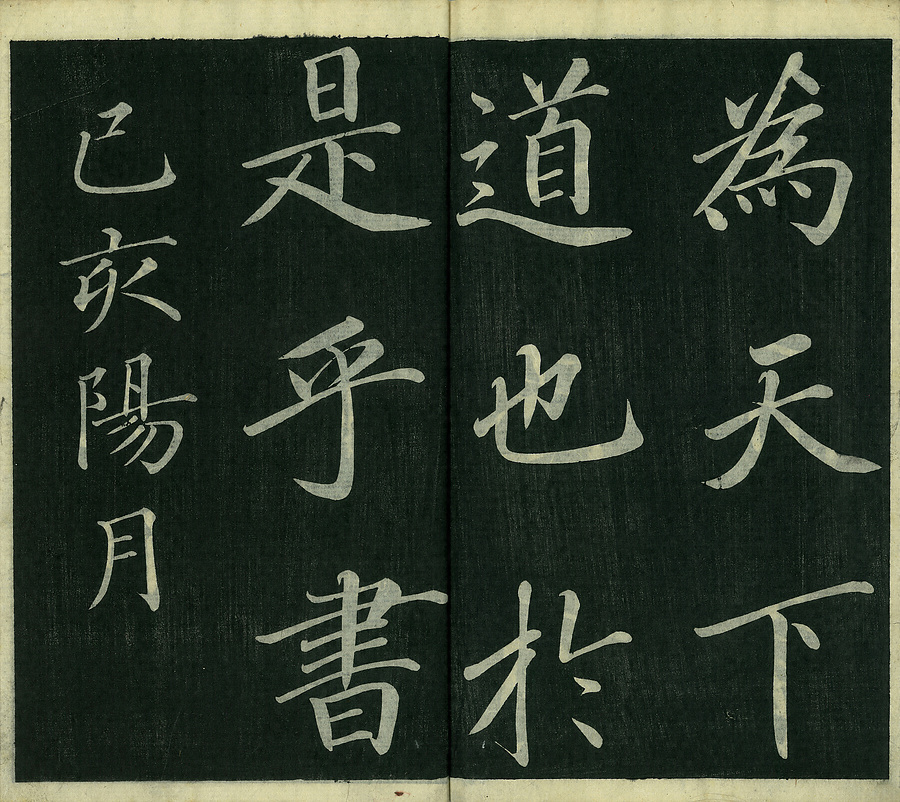 為天下
道也於
是乎書
己亥陽月